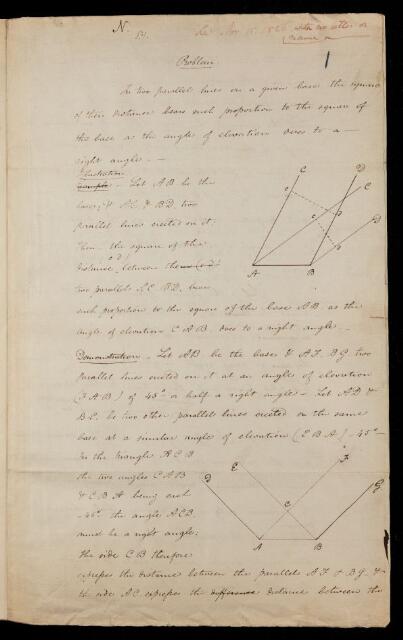 N. 51.
Rec. Nov. 15. 1826 with no letter or
name
1
Problem
In two parallel lines on a given base the square
of their distance bears such proportion to the square of
the base as the angle of elevation does to a
right angle. —
Illustration
Example. — Let AB be the
base; & AC, & BD, two
parallel lines erected on it:
Then the square of the
distance between the
two parallels AC, BD, bears
such proportion to the square of the base AB, as the
angle of elevation CAB, does to a right angle. —
Demonstration. — Let AB be the base & AF, BG two
parallel lines erected on it at an angle of elevation
(FAB) of 45° or half a right angle — Let AD &
BE, be two other parallel lines erected on the same
base at a similar angle of elevation (EBA) — 45° —
In the triangle ACB
the two angles CAB
& CBA being each
45° the angle ACB
must be a right angle;
the side CB therefore
expresses the distance between the parallels AF & BG, &
the side AC expresses the difference distance between the
C
D
C
D
A
B
D
E
F
G
C
A
B